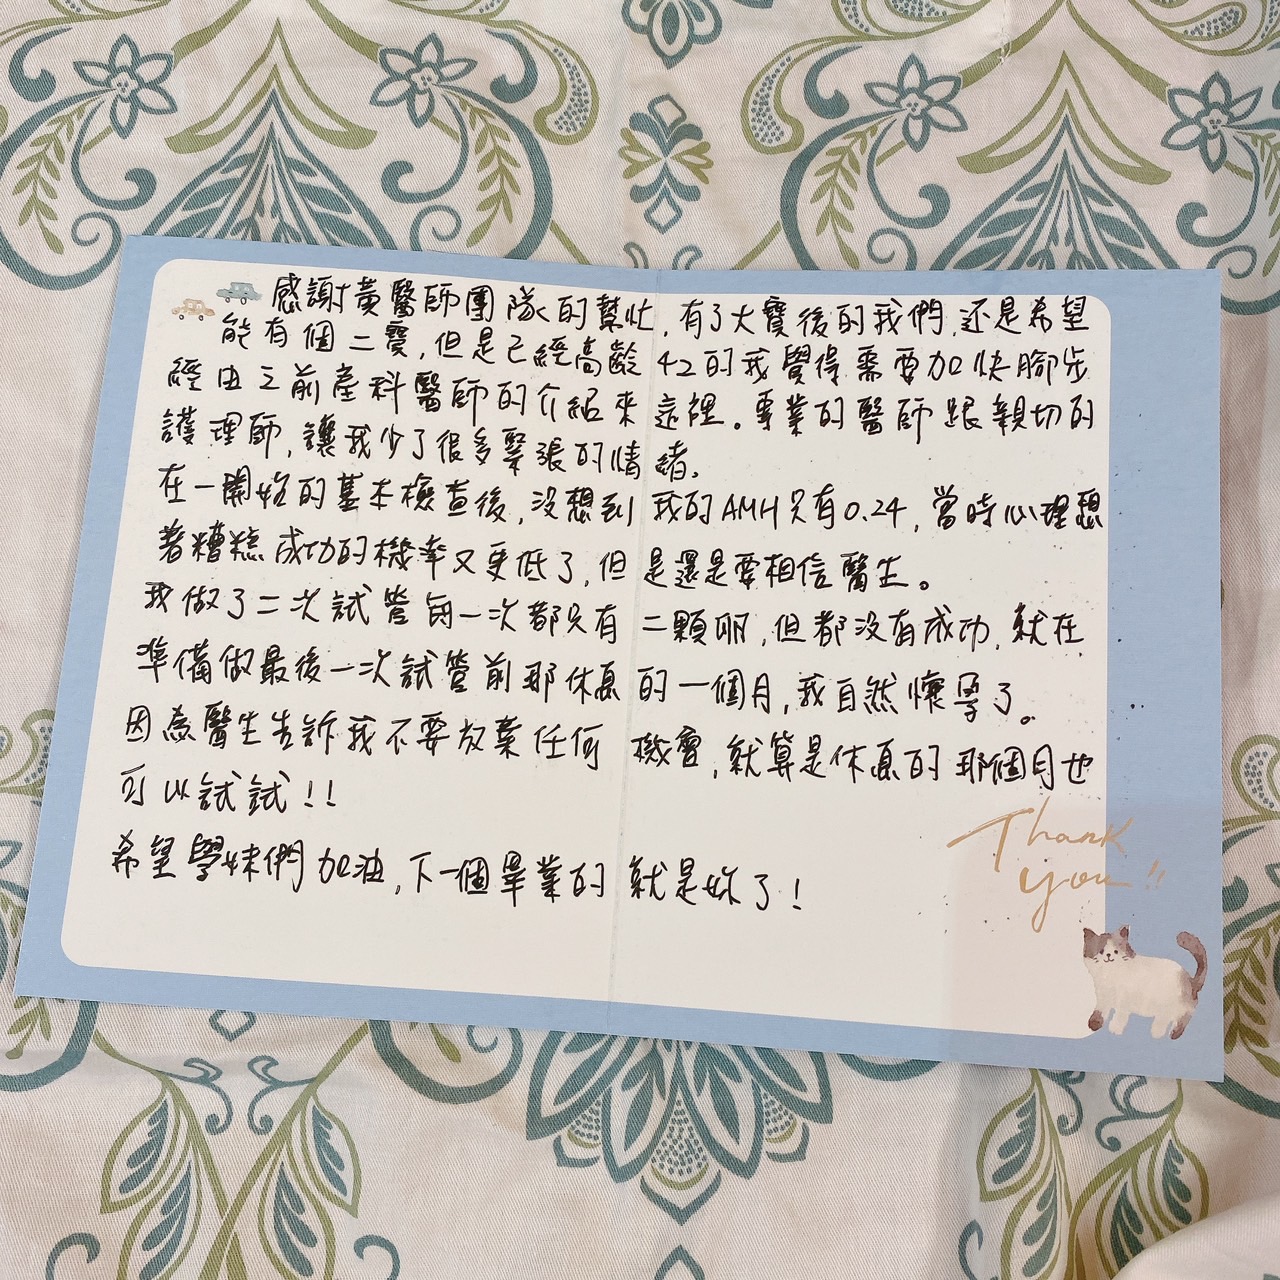 感謝黃醫師團隊的幫忙,有了大寶後的我們,还是希望
能有個二寶,但是已經高齡42的我覺得需要加快腳步
經由之前產科醫師的介紹來這裡。專業的醫師跟親切的
護理師,讓我少了很多緊張的情緒。
在一開始的基本檢查後,沒想到我的AMH只有0.24,當時心理想
著糟糕成功的機率又更低了,但是還是要相信醫生。
我做了二次試管每一次都只有二顆卵,但都沒有成功,就在
準備做最後一次試管前那休息的一個月,我自然懷孕了。
因為醫生告訴我不要放棄任何機會,就算是休息的那個月也
可以試試!!
希望學妹們加油,下一個畢業的就是妳了!
Thank
you!!